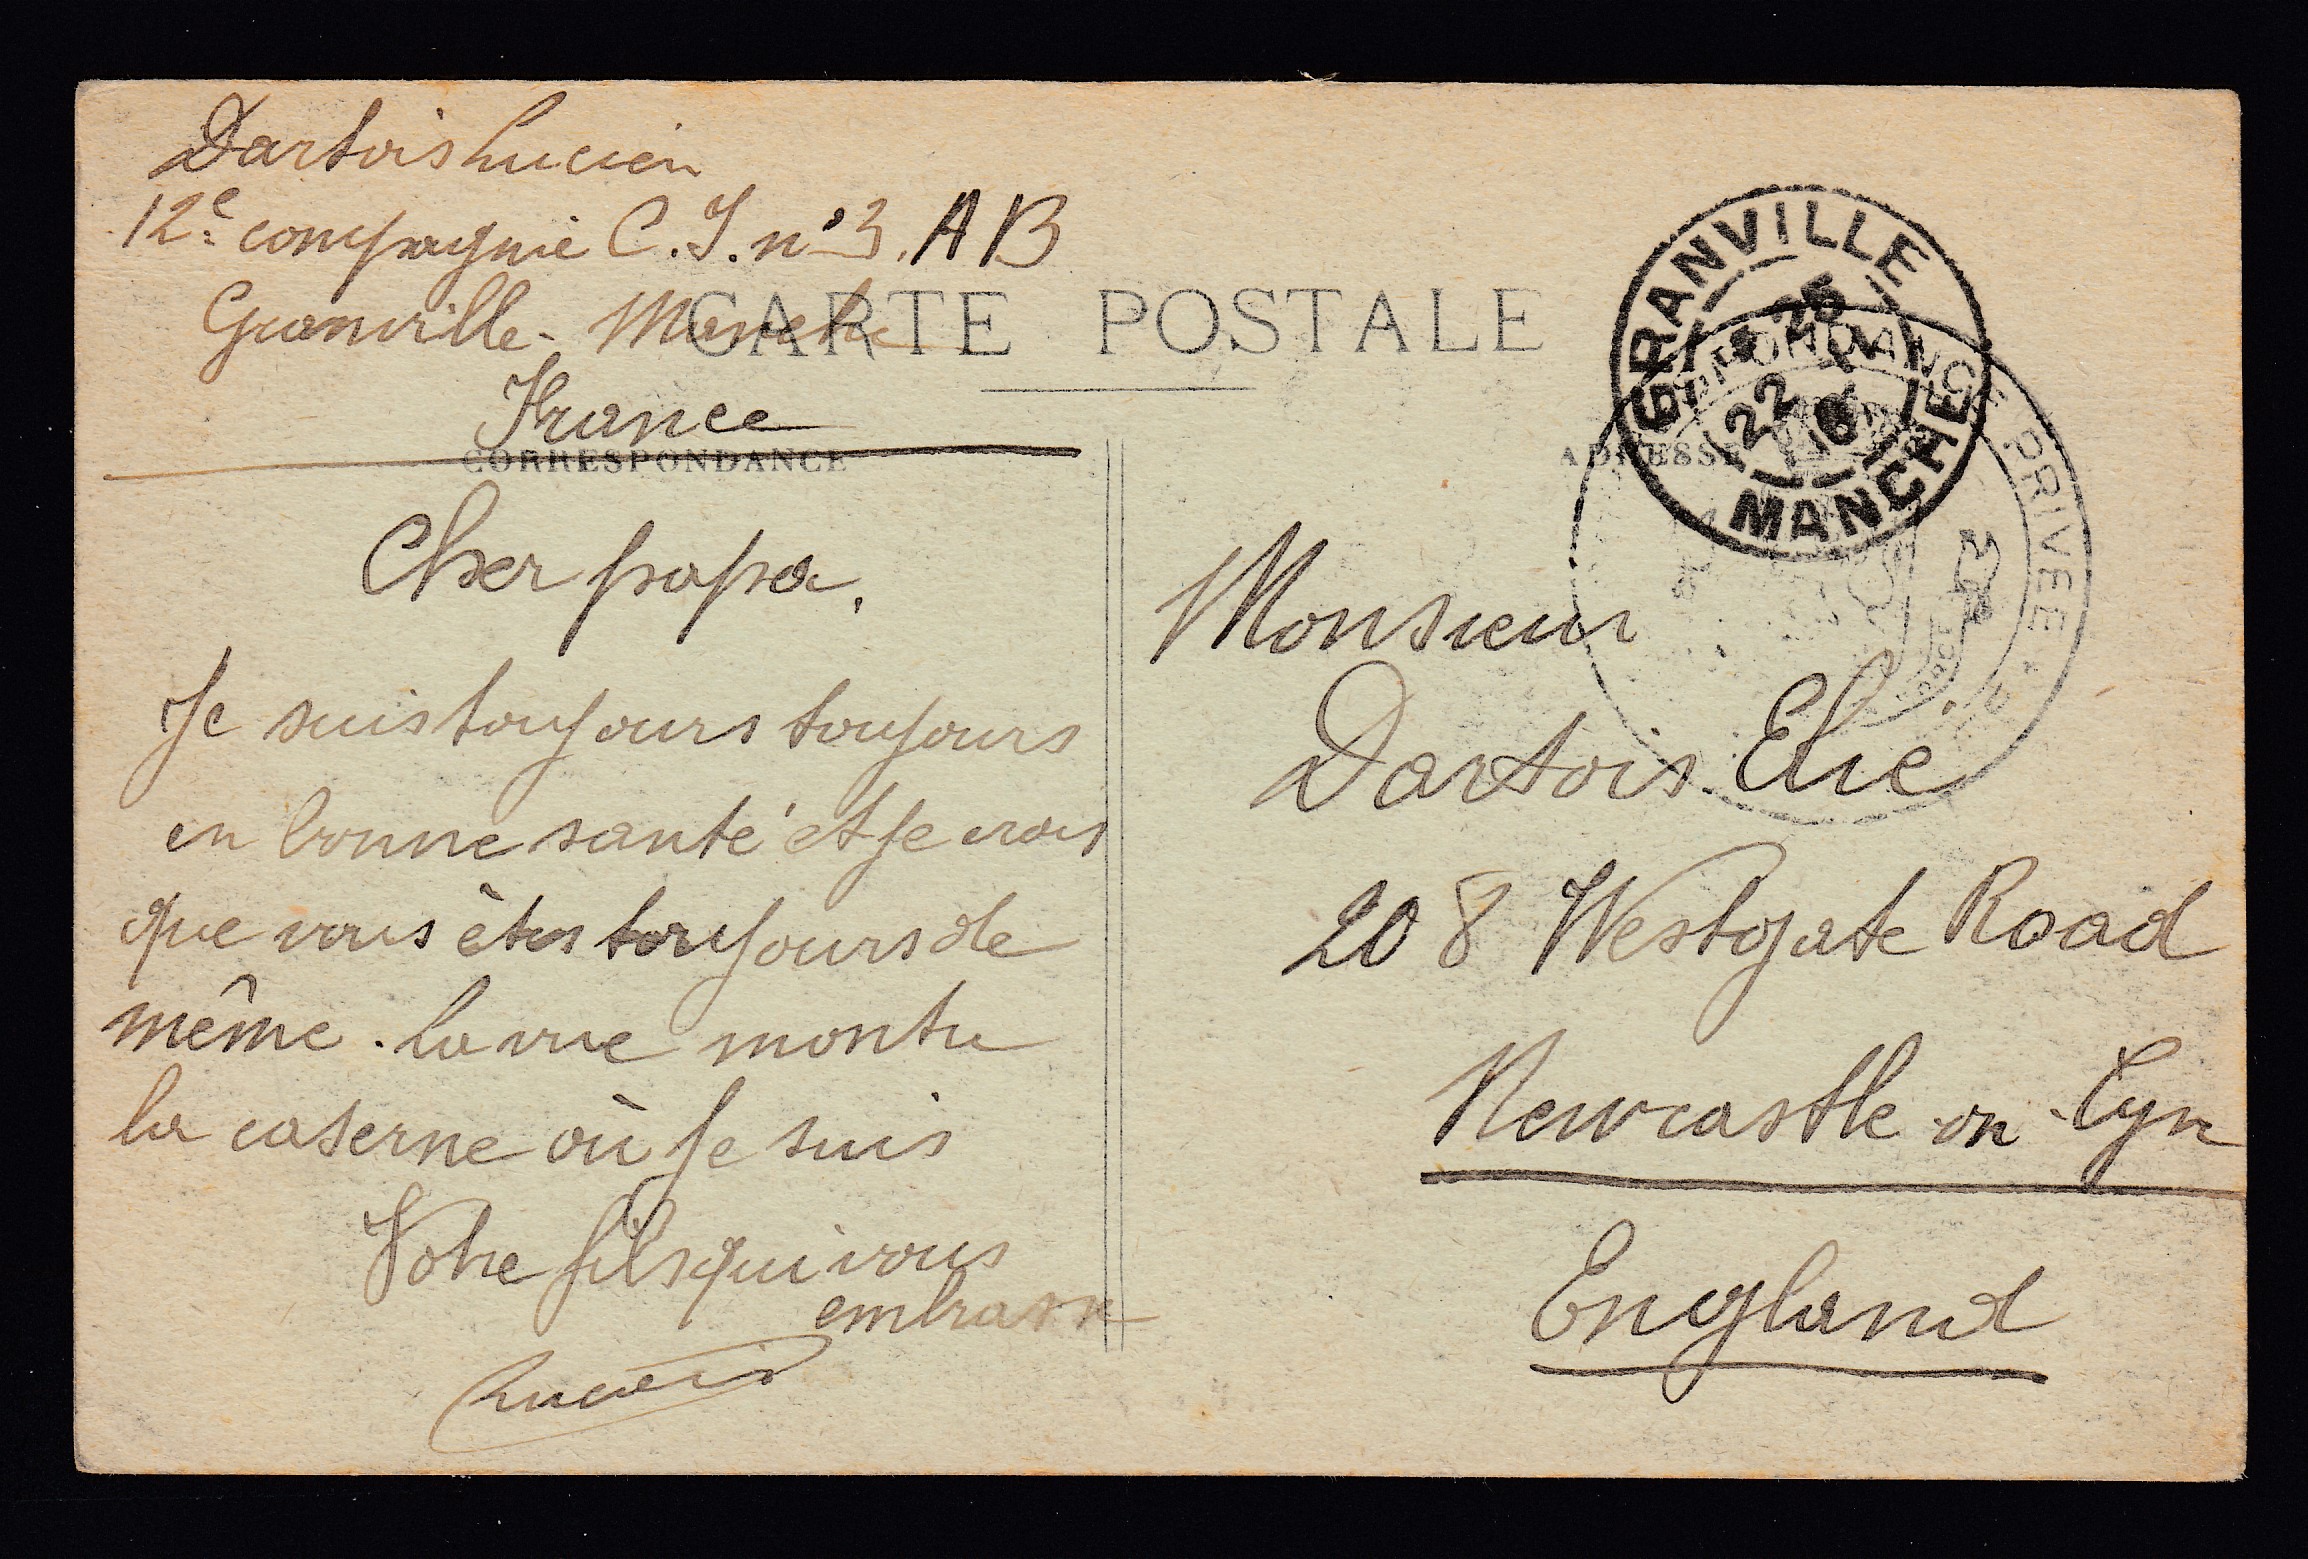 Dartois Lucien
12e compagnie C.I. n°3. AB
Granville - Manche
France
CARTE POSTALE
CORRESPONDANCE
ADRESSE
Cher papa,
Je suis toujours toujours
en bonne santé et je crois
que vous êtes toujours de
même. La vue montre
la caserne où je suis
Votre fils qui vous
embrasse
Lucien
GRANVILLE
25
22
MANCHE
PRIVÉE
Monsieur
Dartois Elie
208 Westgate Road
Newcastle-on-Tyn
England